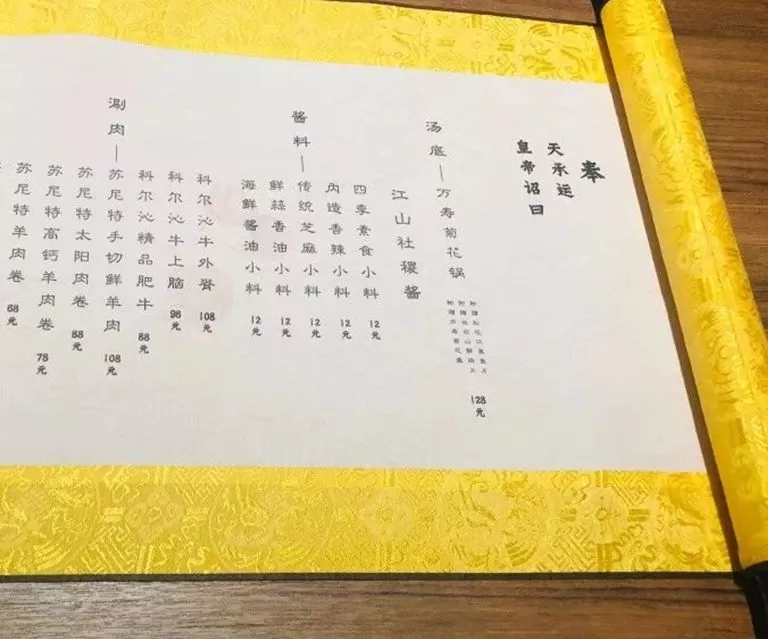 奉
天承运
皇帝诏曰
汤底—万寿菊花锅
128元
江山社稷酱
酱料—
四季素食小料 12元
内造香辣小料 12元
传统芝麻小料 12元
鲜蒜香油小料 12元
海鲜酱油小料 12元
科尔沁牛外脊 108元
科尔沁牛上脑 98元
科尔沁精品肥牛 88元
涮肉—苏尼特手切鲜羊肉 108元
苏尼特太阳肉卷 88元
苏尼特高钙羊肉卷 78元
苏尼特羊肉卷 68元